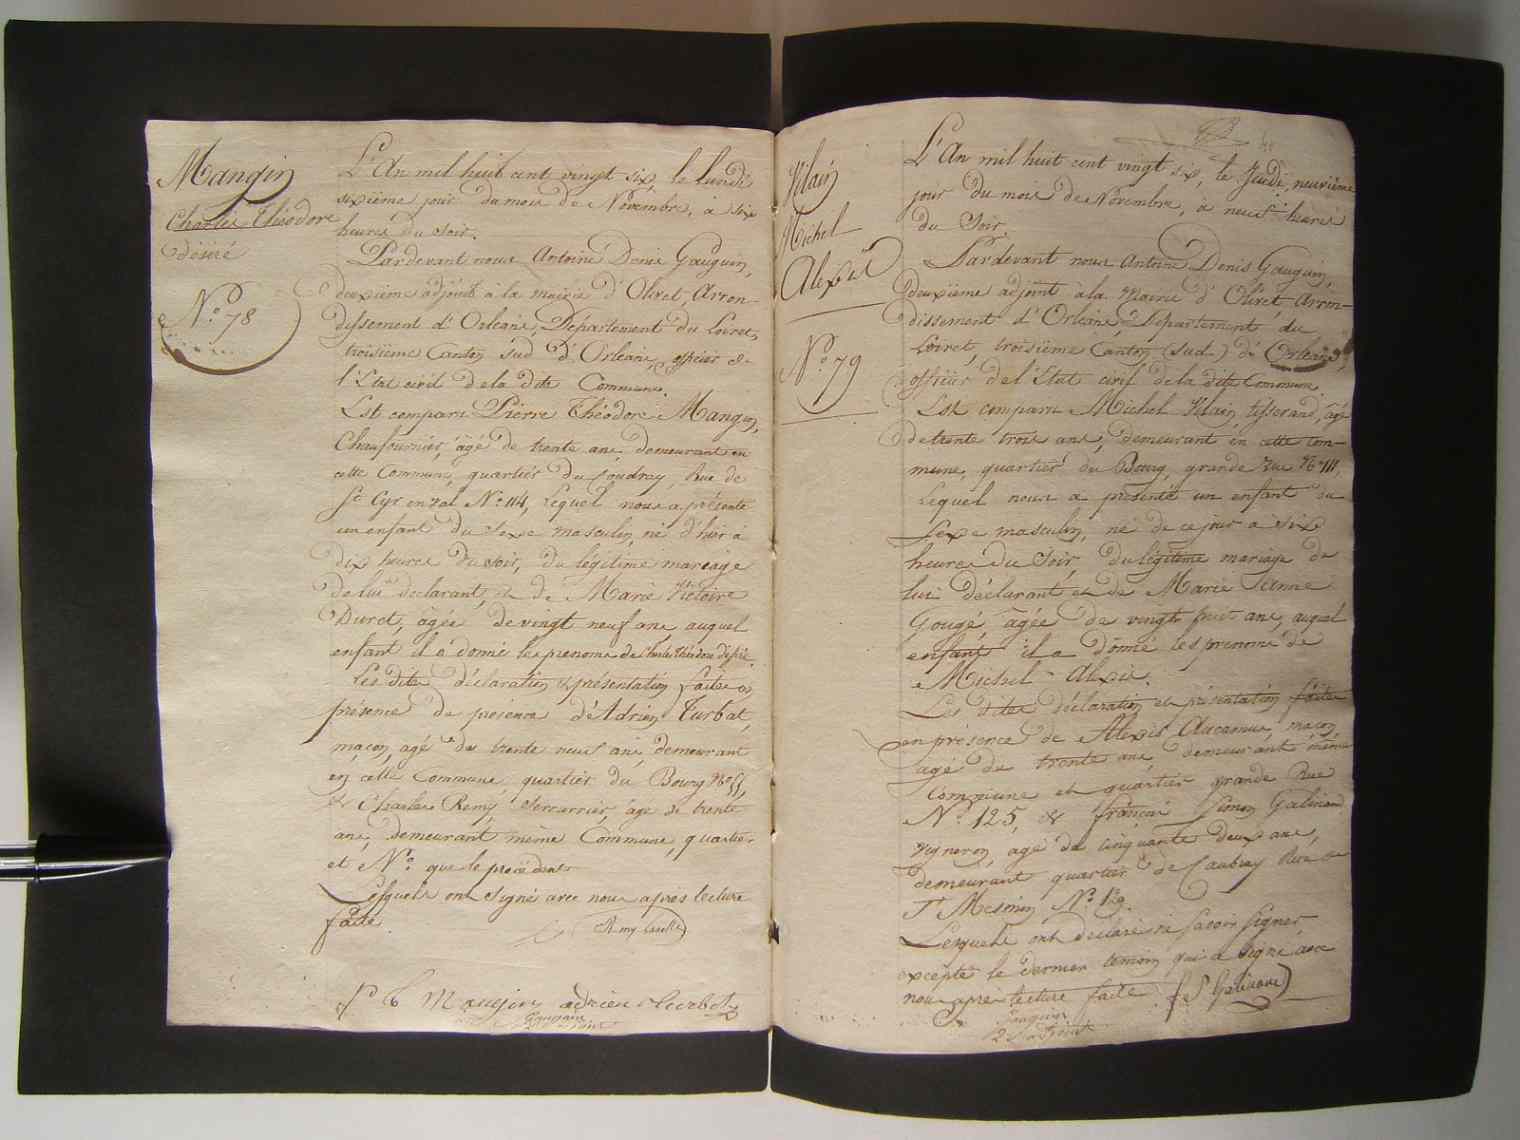 Mangin
Charles Théodore
Désiré
N.º 78
L'An mil huit cent vingt six, le lundi
sixième jour du mois de Novembre, à six
heures du soir.
Pardevant nous Antoine Denis Gauguin,
deuxième adjoint à la mairie d'Olivet, Arron-
dissement d'Orléans, Département du Loiret,
troisième Canton sud d'Orléans, officier de
l'Etat civil de la dite Commune.
Est comparu Pierre Théodore Mangin,
Chaufournier, âgé de trente ans, demeurant en
cette Commune, quartier du Coudray, Rue de
St Cyr en val N.º 114, lequel nous a présenté
un enfant du sexe masculin, né d'hier à
dix heures du soir, du légitime mariage
de lui déclarant, et de Marie Victoire
Duret, âgée de vingt neuf ans auquel
enfant il a donné les prenoms de Charles Théodore Désiré.
Les dites déclaration et présentation faites en
présence de présence d'Adrien Turbat,
maçon, agé de trente neuf ans, demeurant
en cette Commune, quartier du Bourg Nº 55,
& Charles Remy, Serrurier, âgé de trente
ans, demeurant même Commune, quartier
et N.º que le précédent
Lesquels ont signé avec nous après lecture
faite.
Remy
P T Mangin adrien
Gauguin
2e adjoint
Vilain
Michel
Alexis
N.º 79
L'An mil huit cent vingt six, le Jeudi, neuvième
jour du mois de Novembre, à neuf heures
du Soir.
Pardevant nous Antoine Denis Gauguin,
deuxième adjoint à la Mairie d'Olivet, Arron-
dissement d'Orléans Département du
Loiret, troisième Canton (sud) d'Orléans,
officier de l'Etat civil de la dite Commune.
Est comparu Michel Vilain, tisserand, âgé
de trente trois ans, demeurant en cette com-
mune, quartier du Bourg, grande rue Nº 111,
Lequel nous a présenté un enfant du
Sexe masculin, né de ce jour à six
heures du Soir, du légitime mariage de
lui déclarant et de Marie Anne
Gougé âgée de vingt huit ans, auquel
enfant il a donné les prénoms de
Michel Alexis.
Les dites déclaration et présentation faites
en présence de Alexis maçon,
agé de trente ans, demeurant même
Commune et quartier grande Rue
N.º 125, & françois Simon Galinand
vigneron, agé de cinquante deux ans,
demeurant quartier de Caubray Rue de
St Mesmin N.º 139.
Lesquels ont déclaré ne savoir signer,
excepté le dernier temoin qui a signé avec
nous après lecture faite. f S Galinand
Gauguin
2e adjoint